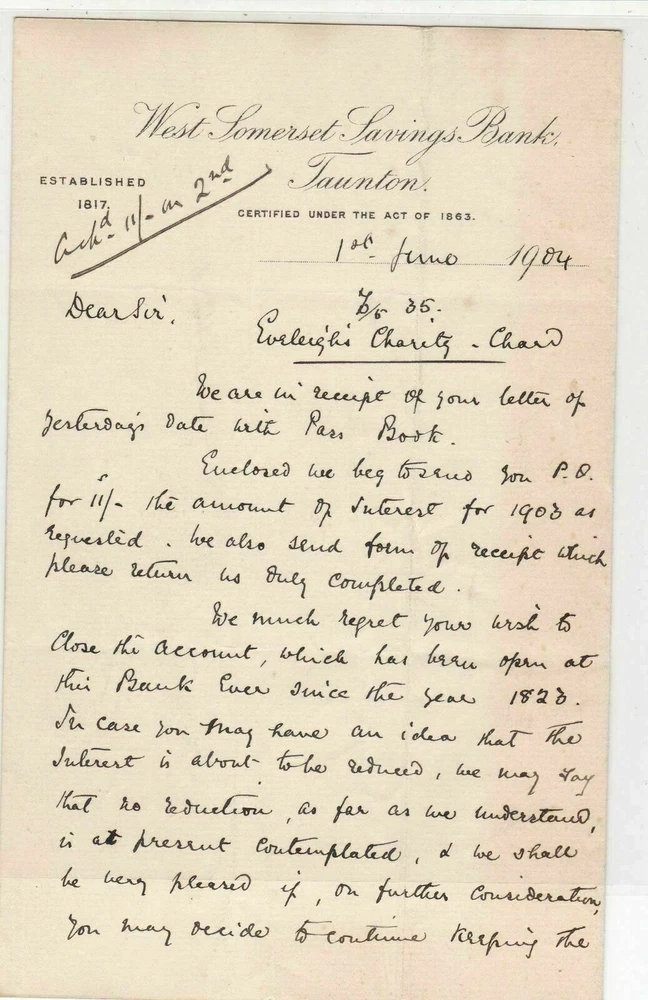 West Somerset Savings Bank.
Taunton.
ESTABLISHED
1817.
CERTIFIED UNDER THE ACT OF 1863.
Ackd 11/- on 2nd
1st June 1904
Dear Sir,
35.
Eveleigh's Charity - Chard
We are in receipt of your letter of
yesterday's date with Pass Book.
Enclosed we beg to send you P.O.
for 11s/- the amount of Interest for 1903 as
requested. We also send form of receipt which
please return us duly completed.
We much regret your wish to
close the account, which has been open at
this Bank ever since the year 1823.
In case you may have an idea that the
Interest is about to be reduced, we may say
that no reduction, as far as we understand,
is at present contemplated, & we shall
be very pleased if, on further consideration,
you may decide to continue keeping the